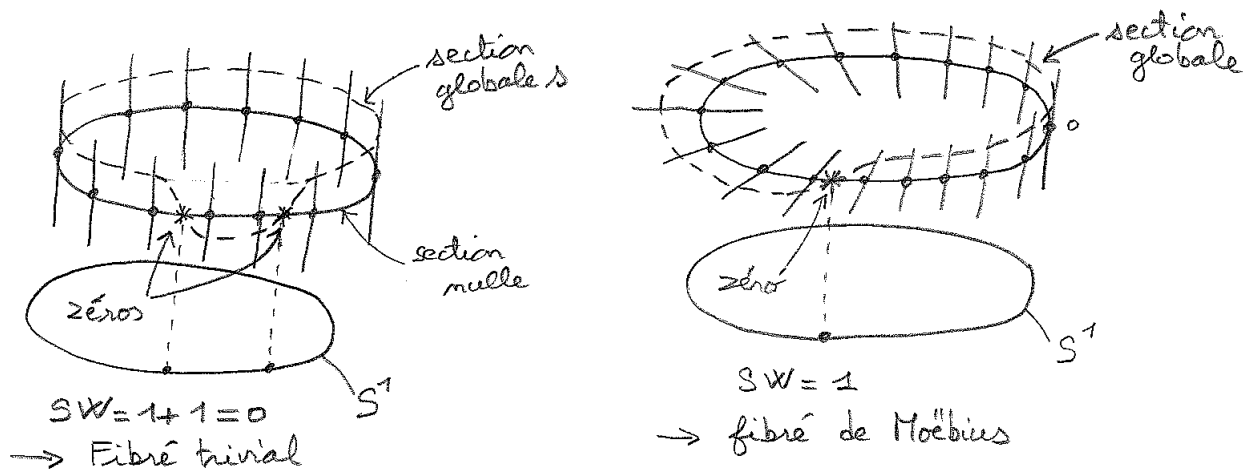 section
globale s
section
nulle
zéros
S¹
SW = 1 + 1 = 0
→ Fibré trivial
section
globale
0
zéro
S¹
SW = 1
→ fibré de Moëbius